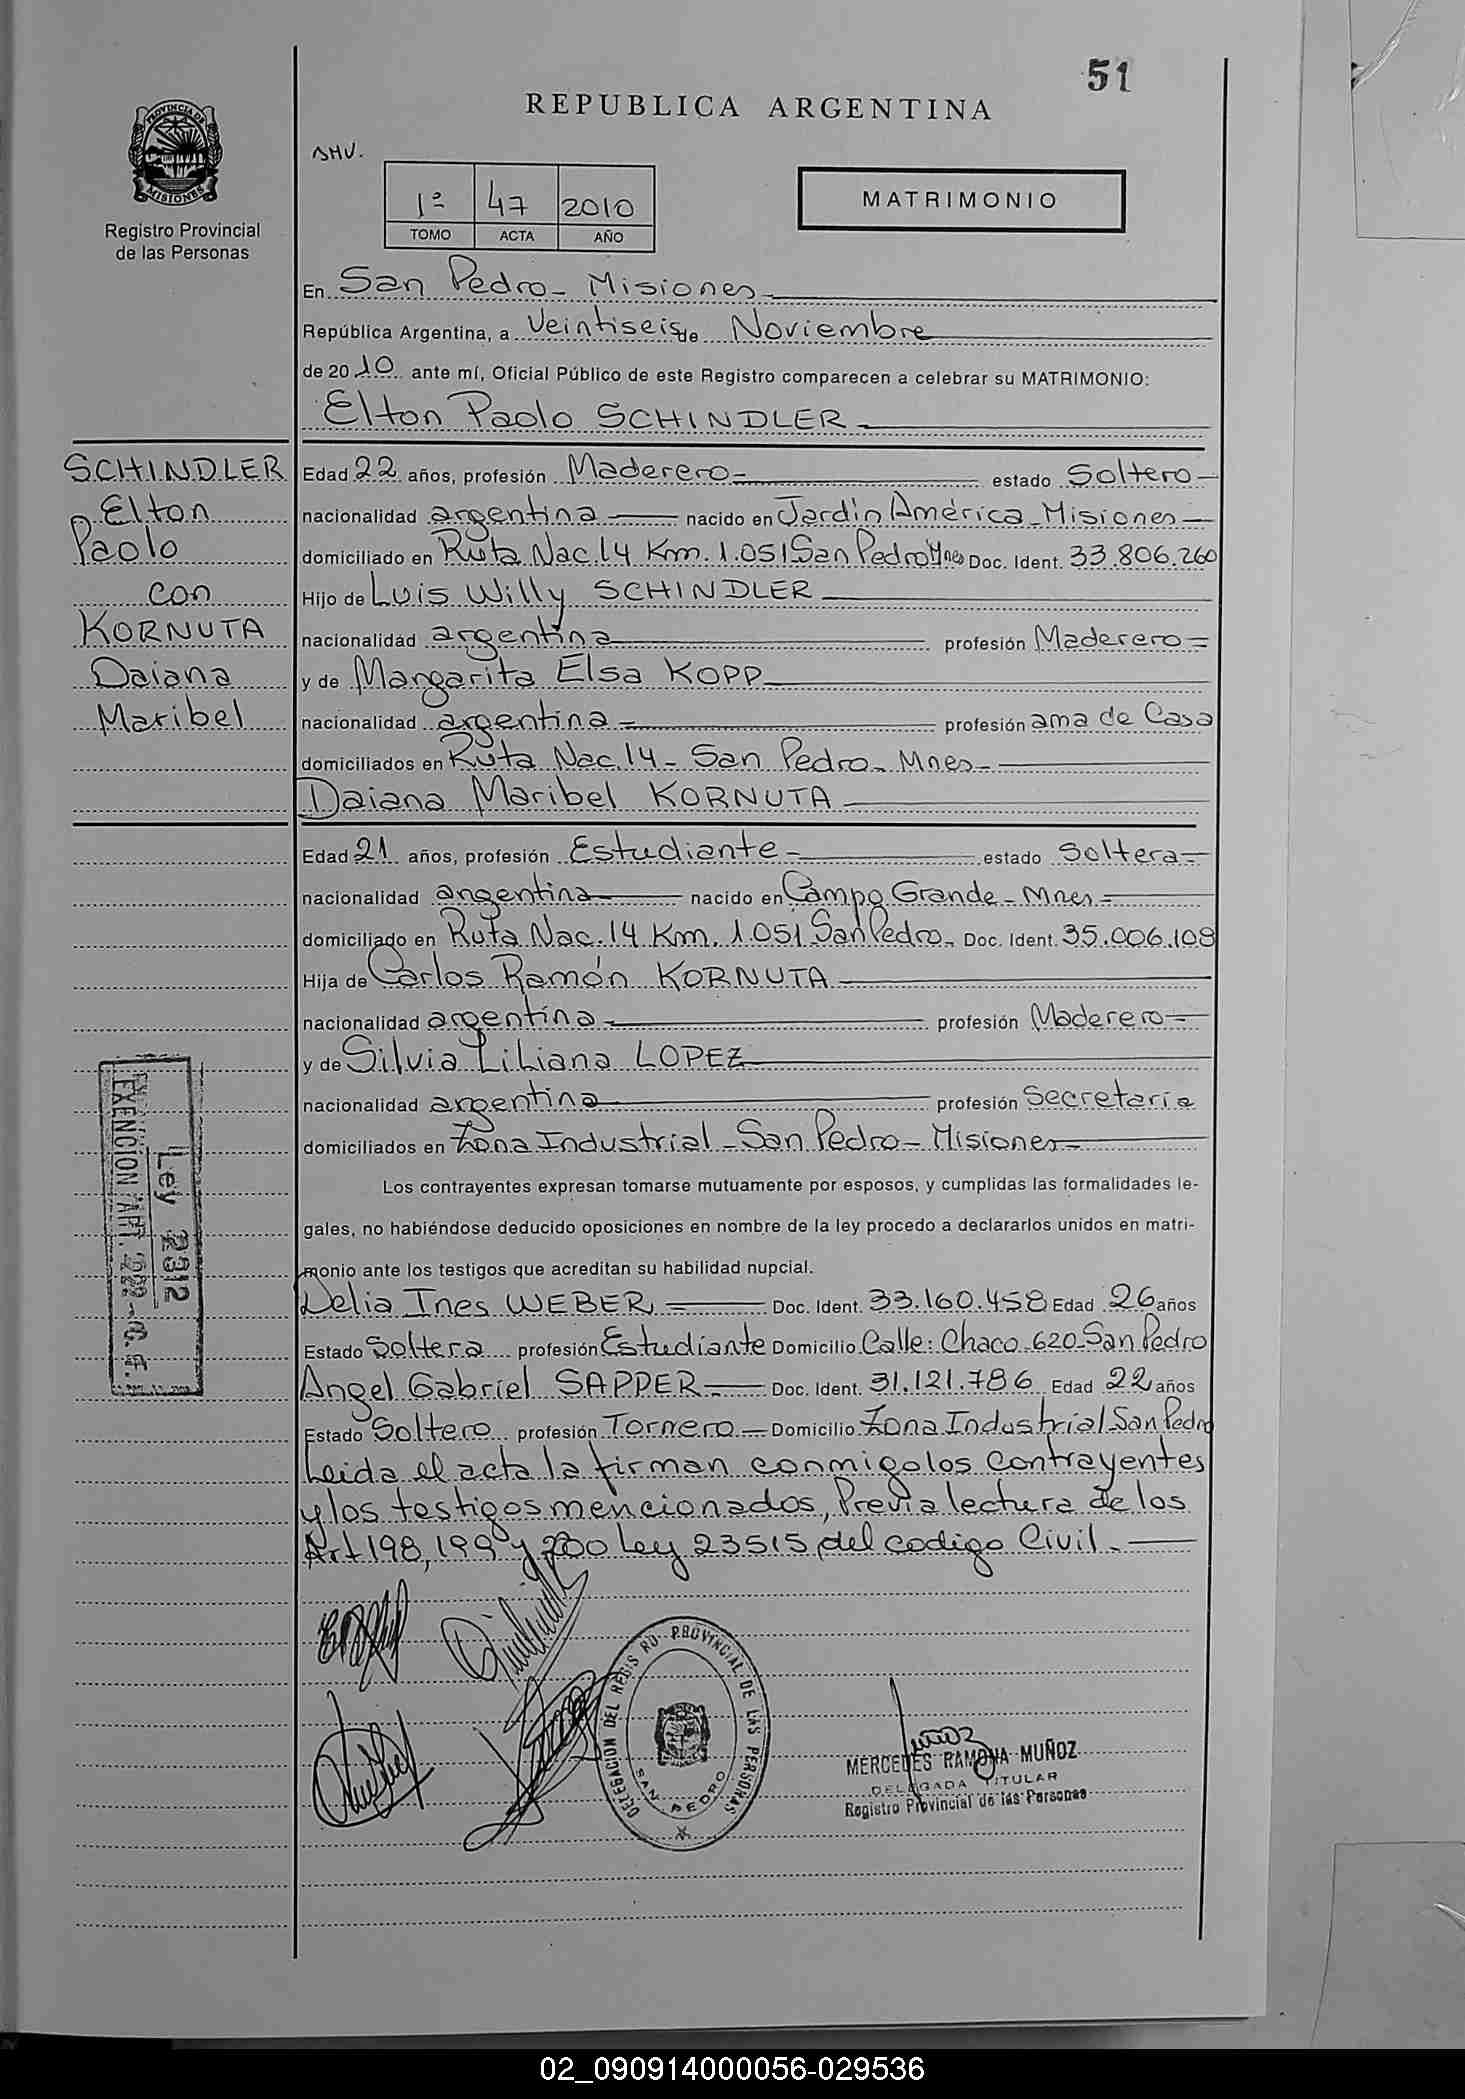 51
REPUBLICA ARGENTINA
PROVINCIA DE MISIONES
Registro Provincial
de las Personas
1º 47 2010
TOMO ACTA AÑO
MATRIMONIO
En San Pedro - Misiones
República Argentina, a Veintiseis de Noviembre
de 2010 ante mí, Oficial Público de este Registro comparecen a celebrar su MATRIMONIO:
Elton Paolo SCHINDLER
SCHINDLER
Elton
Paolo
con
KORNUTA
Daiana
Maribel
Edad 22 años, profesión Maderero estado Soltero
nacionalidad argentina nacido en Jardín América - Misiones
domiciliado en Ruta Nac. 14 Km. 1.051 San Pedro Mnes Doc. Ident. 33.806.260
Hijo de Luis Willy SCHINDLER
nacionalidad argentina profesión Maderero
y de Margarita Elsa KOPP
nacionalidad argentina profesión ama de Casa
domiciliados en Ruta Nac. 14 - San Pedro - Mnes
Daiana Maribel KORNUTA
Edad 21 años, profesión Estudiante estado Soltera
nacionalidad argentina nacido en Campo Grande - Mnes
domiciliado en Ruta Nac. 14 Km. 1.051 San Pedro - Doc. Ident. 35.006.108
Hija de Carlos Ramón KORNUTA
nacionalidad argentina profesión Maderero
y de Silvia Liliana LOPEZ
nacionalidad argentina profesión Secretaria
domiciliados en Zona Industrial - San Pedro - Misiones
Los contrayentes expresan tomarse mutuamente por esposos, y cumplidas las formalidades le-
gales, no habiéndose deducido oposiciones en nombre de la ley procedo a declararlos unidos en matri-
monio ante los testigos que acreditan su habilidad nupcial.
Ley 2312
EXENCION ART.
Delia Ines WEBER Doc. Ident. 33.160.458 Edad 26 años
Estado Soltera profesión Estudiante Domicilio Calle: Chaco - 620 - San Pedro
Angel Gabriel SAPPER Doc. Ident. 31.121.786 Edad 22 años
Estado Soltero profesión Tornero Domicilio Zona Industrial San Pedro
Leida el acta la firman conmigo los contrayentes
y los testigos mencionados, Previa lectura de los
Art 198, 199 y 200 Ley 23515 del codigo Civil.
DELEGACION DEL REGISTRO PROVINCIAL DE LAS PERSONAS
SAN PEDRO
MERCEDES RAMONA MUÑOZ
DELEGADA TITULAR
Registro Provincial de las Personas
02_090914000056-029536